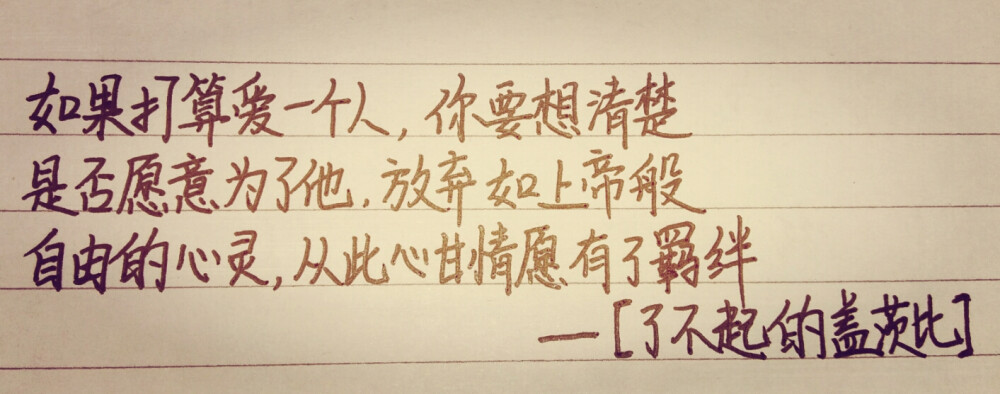 如果打算爱一个人,你要想清楚
是否愿意为了他,放弃如上帝般
自由的心灵,从此心甘情愿有了羁绊
—[了不起的盖茨比]